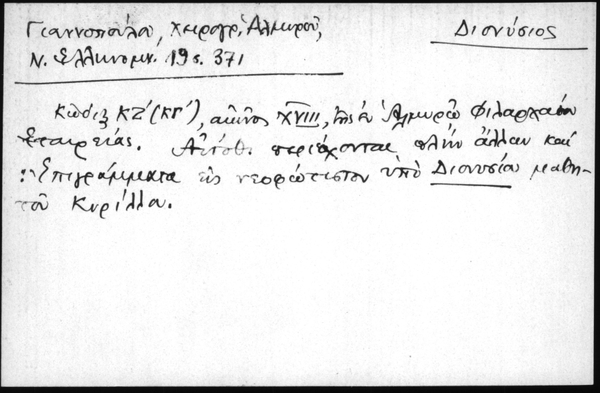 Γιαννοπούλου, Χειρόγρ. Ἁλμυροῦ, Διονύσιος
Ν. Ἑλληνομν. 19 σ. 371
Κῶδιξ ΚΖ΄ (ΚΓ΄), αἰῶνος XVIII, τῆς ἐν Ἁλμυρῷ Φιλαρχαίου
Ἑταιρείας. Αὐτόθι περιέχονται πλὴν ἄλλων καὶ
:: Ἐπιγράμματα εἰς νεοφώτιστον ὑπὸ Διονυσίου μαθη-
τοῦ Κυρίλλου.